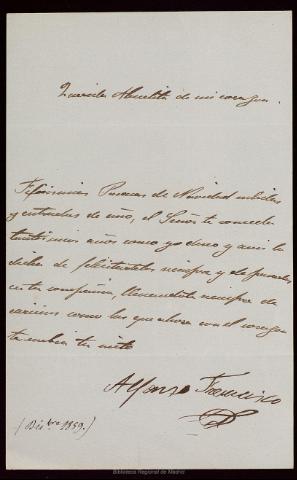 Querida Abuelita de mi corazon.
Felicisimas Pascuas de Navidad
y entradas de año, el Señor te conceda
tantisimos años como yo deseo y a mi la
dicha de felicitartelas siempre y de pasarlas
en tu compañia, llenandote siempre de
cariños como los que ahora con el corazon
te envia tu nieto
Alfonso Francisco
(Dic.bre 1859.)
Biblioteca Regional de Madrid